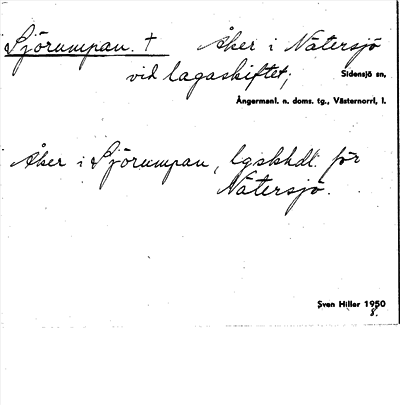 Sjörumpan. † Åker i Nätersjö
vid lagaskiftet; Sidensjö sn,
Ångermanl. n. doms. tg., Västernorrl. l.
Åker i Sjörumpan, lgskhdl. för
Nätersjö.
Sven Hiller 1950
8.